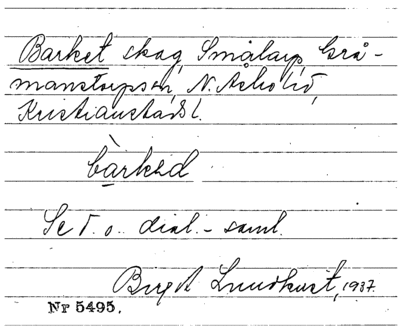 Barket skog, Smålarp, Grå-
manstorps sn, N. Åsbo hd,
Kristianstads l.
bàrkəd
Se T. o. dial.-saml.
Birgit Lundkvist, 1937.
Nr 5495.